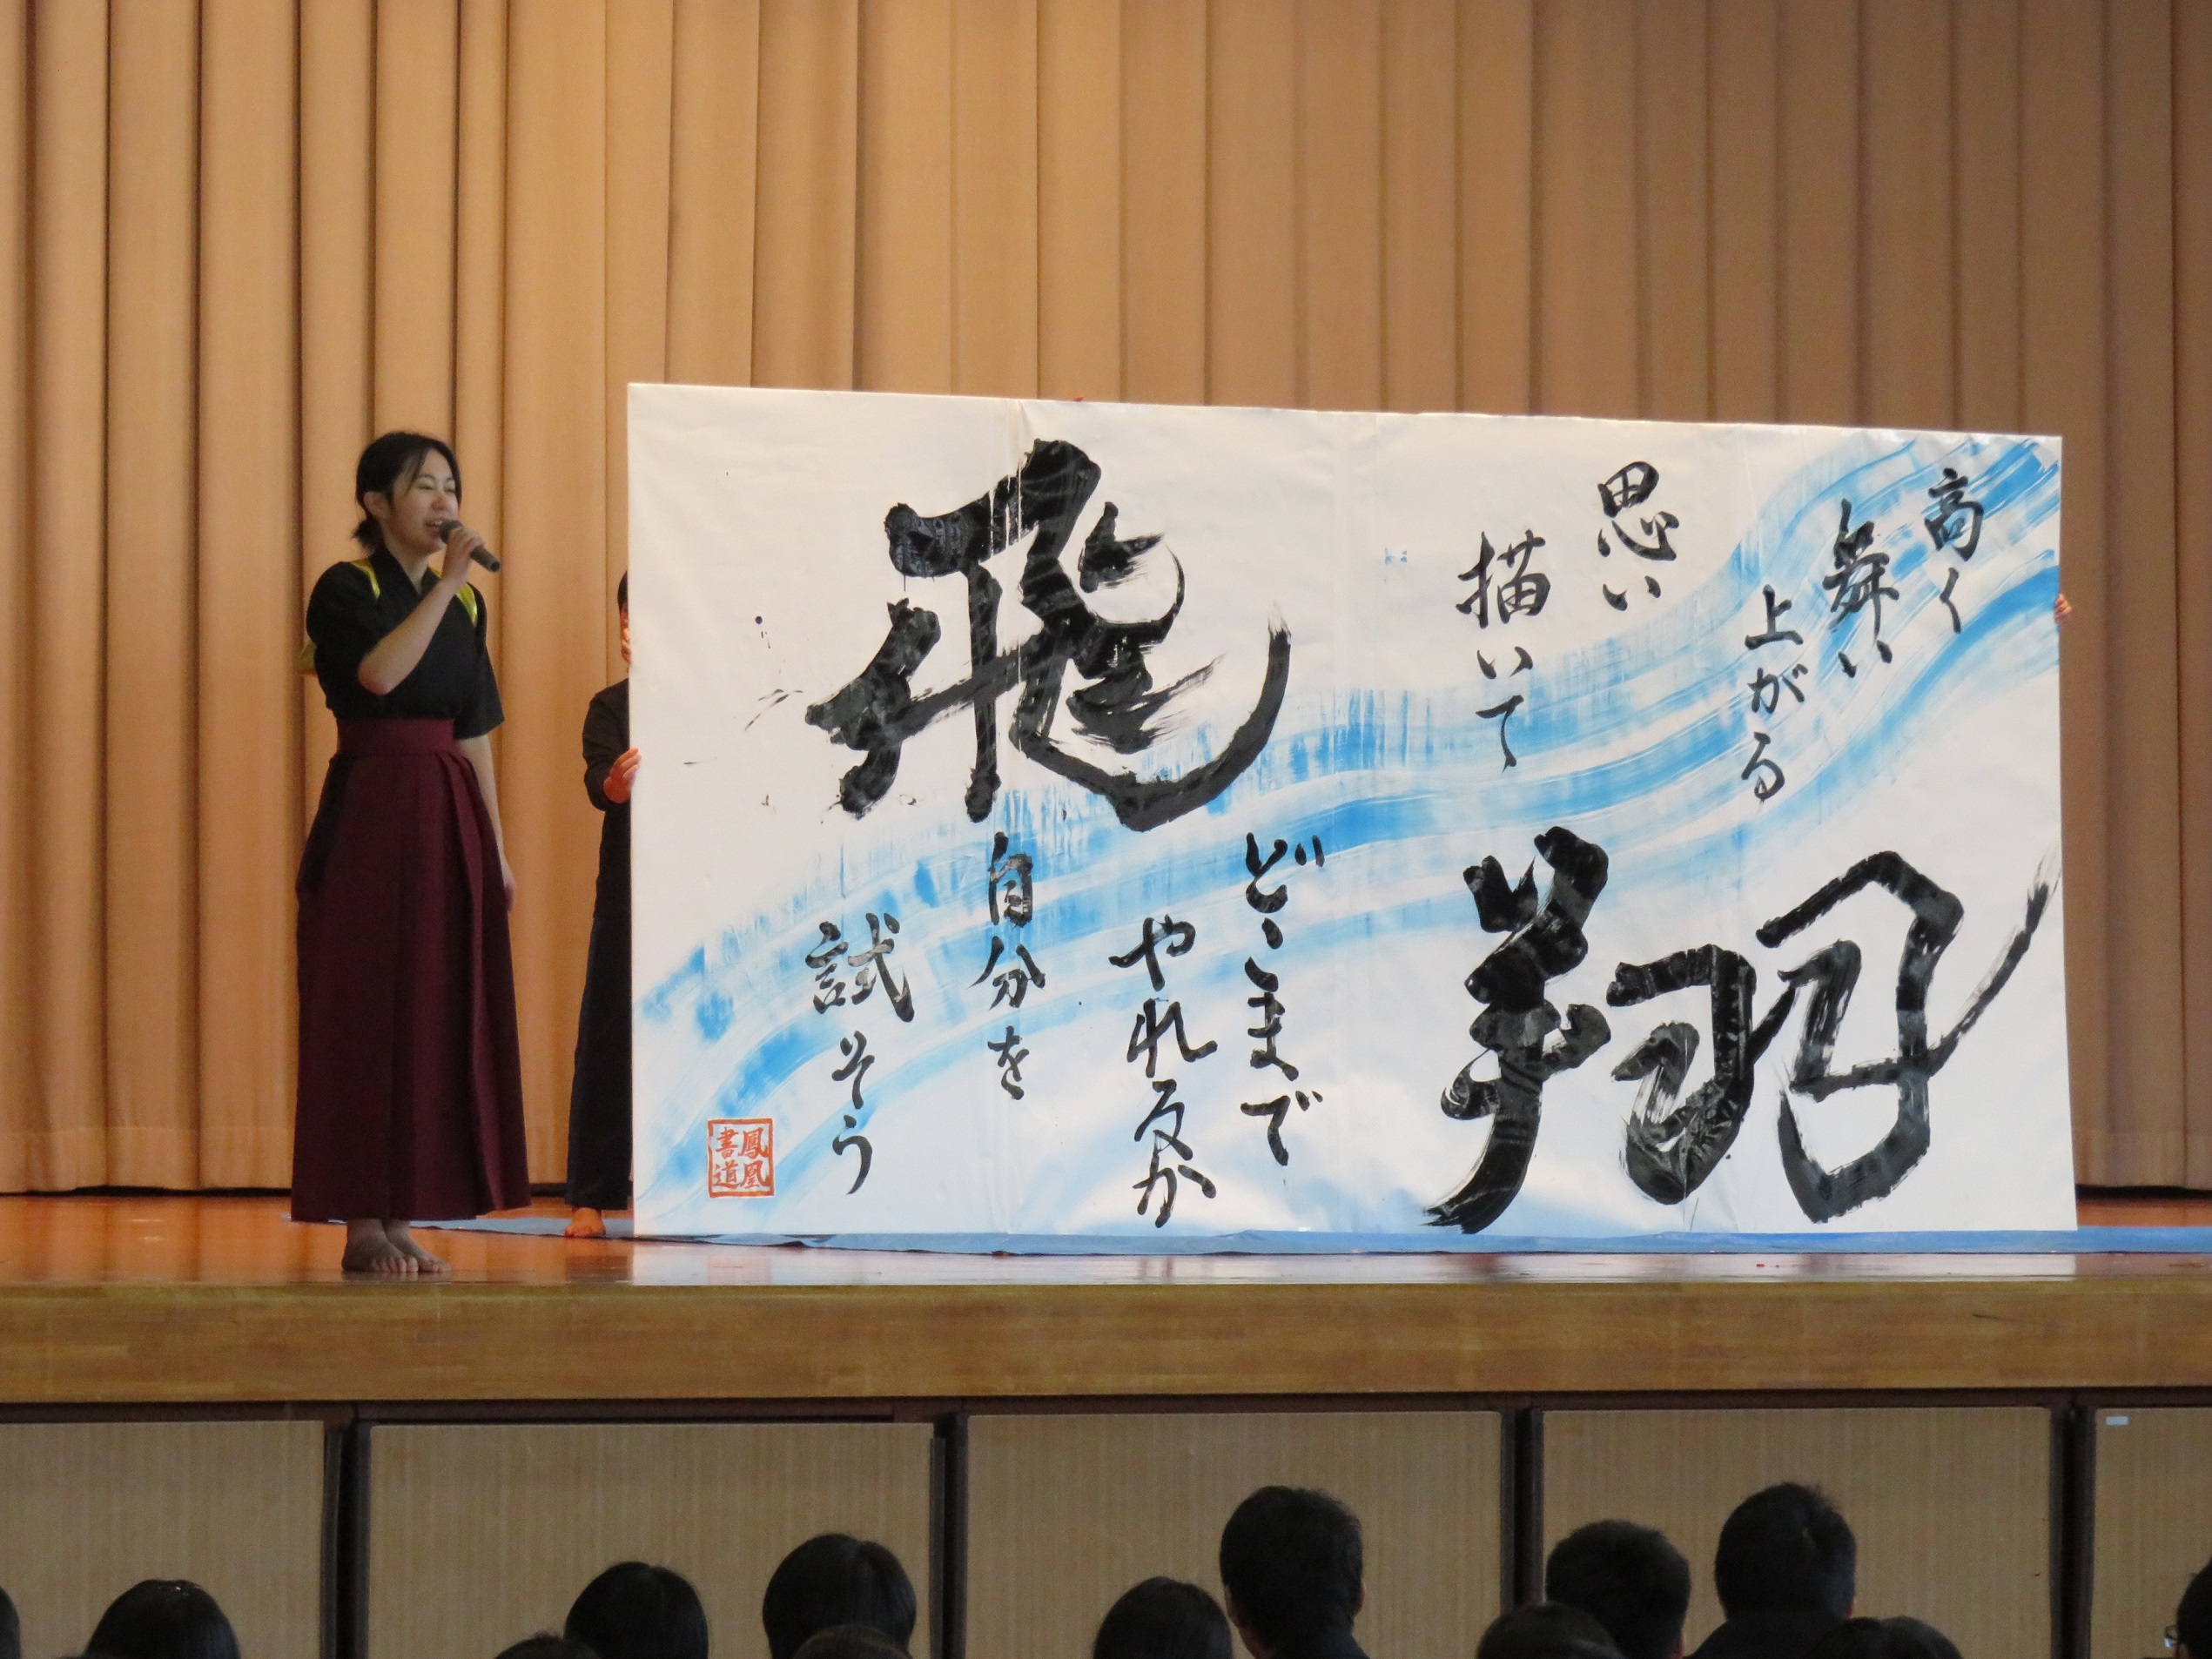 高く
舞い
上がる
思い
描いて
翔
飛
どこまで
やれるか
自分を
試そう
鳳凰
書道